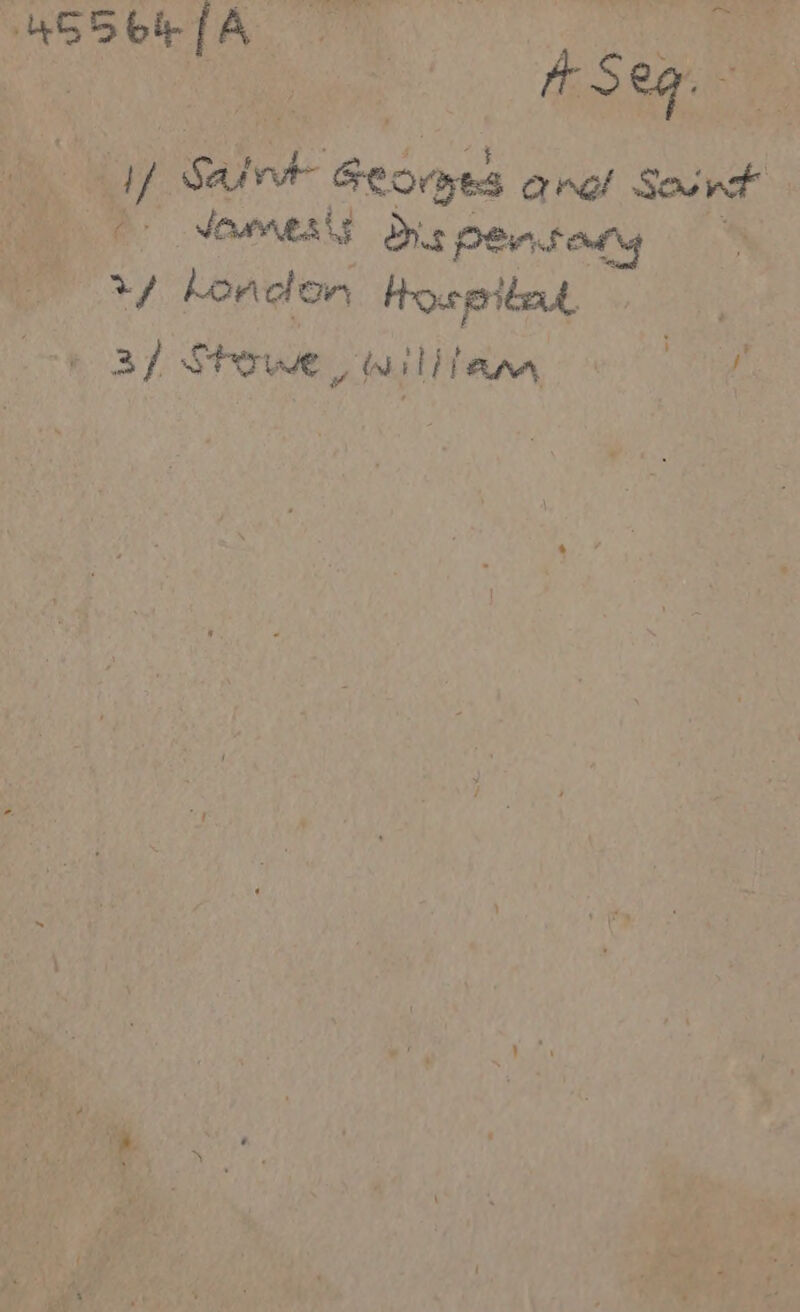 45564/A
A Seq.
1/ Saint Georges and Saint
James's Dispensary
2/ London Hospital
3/ Stowe, William